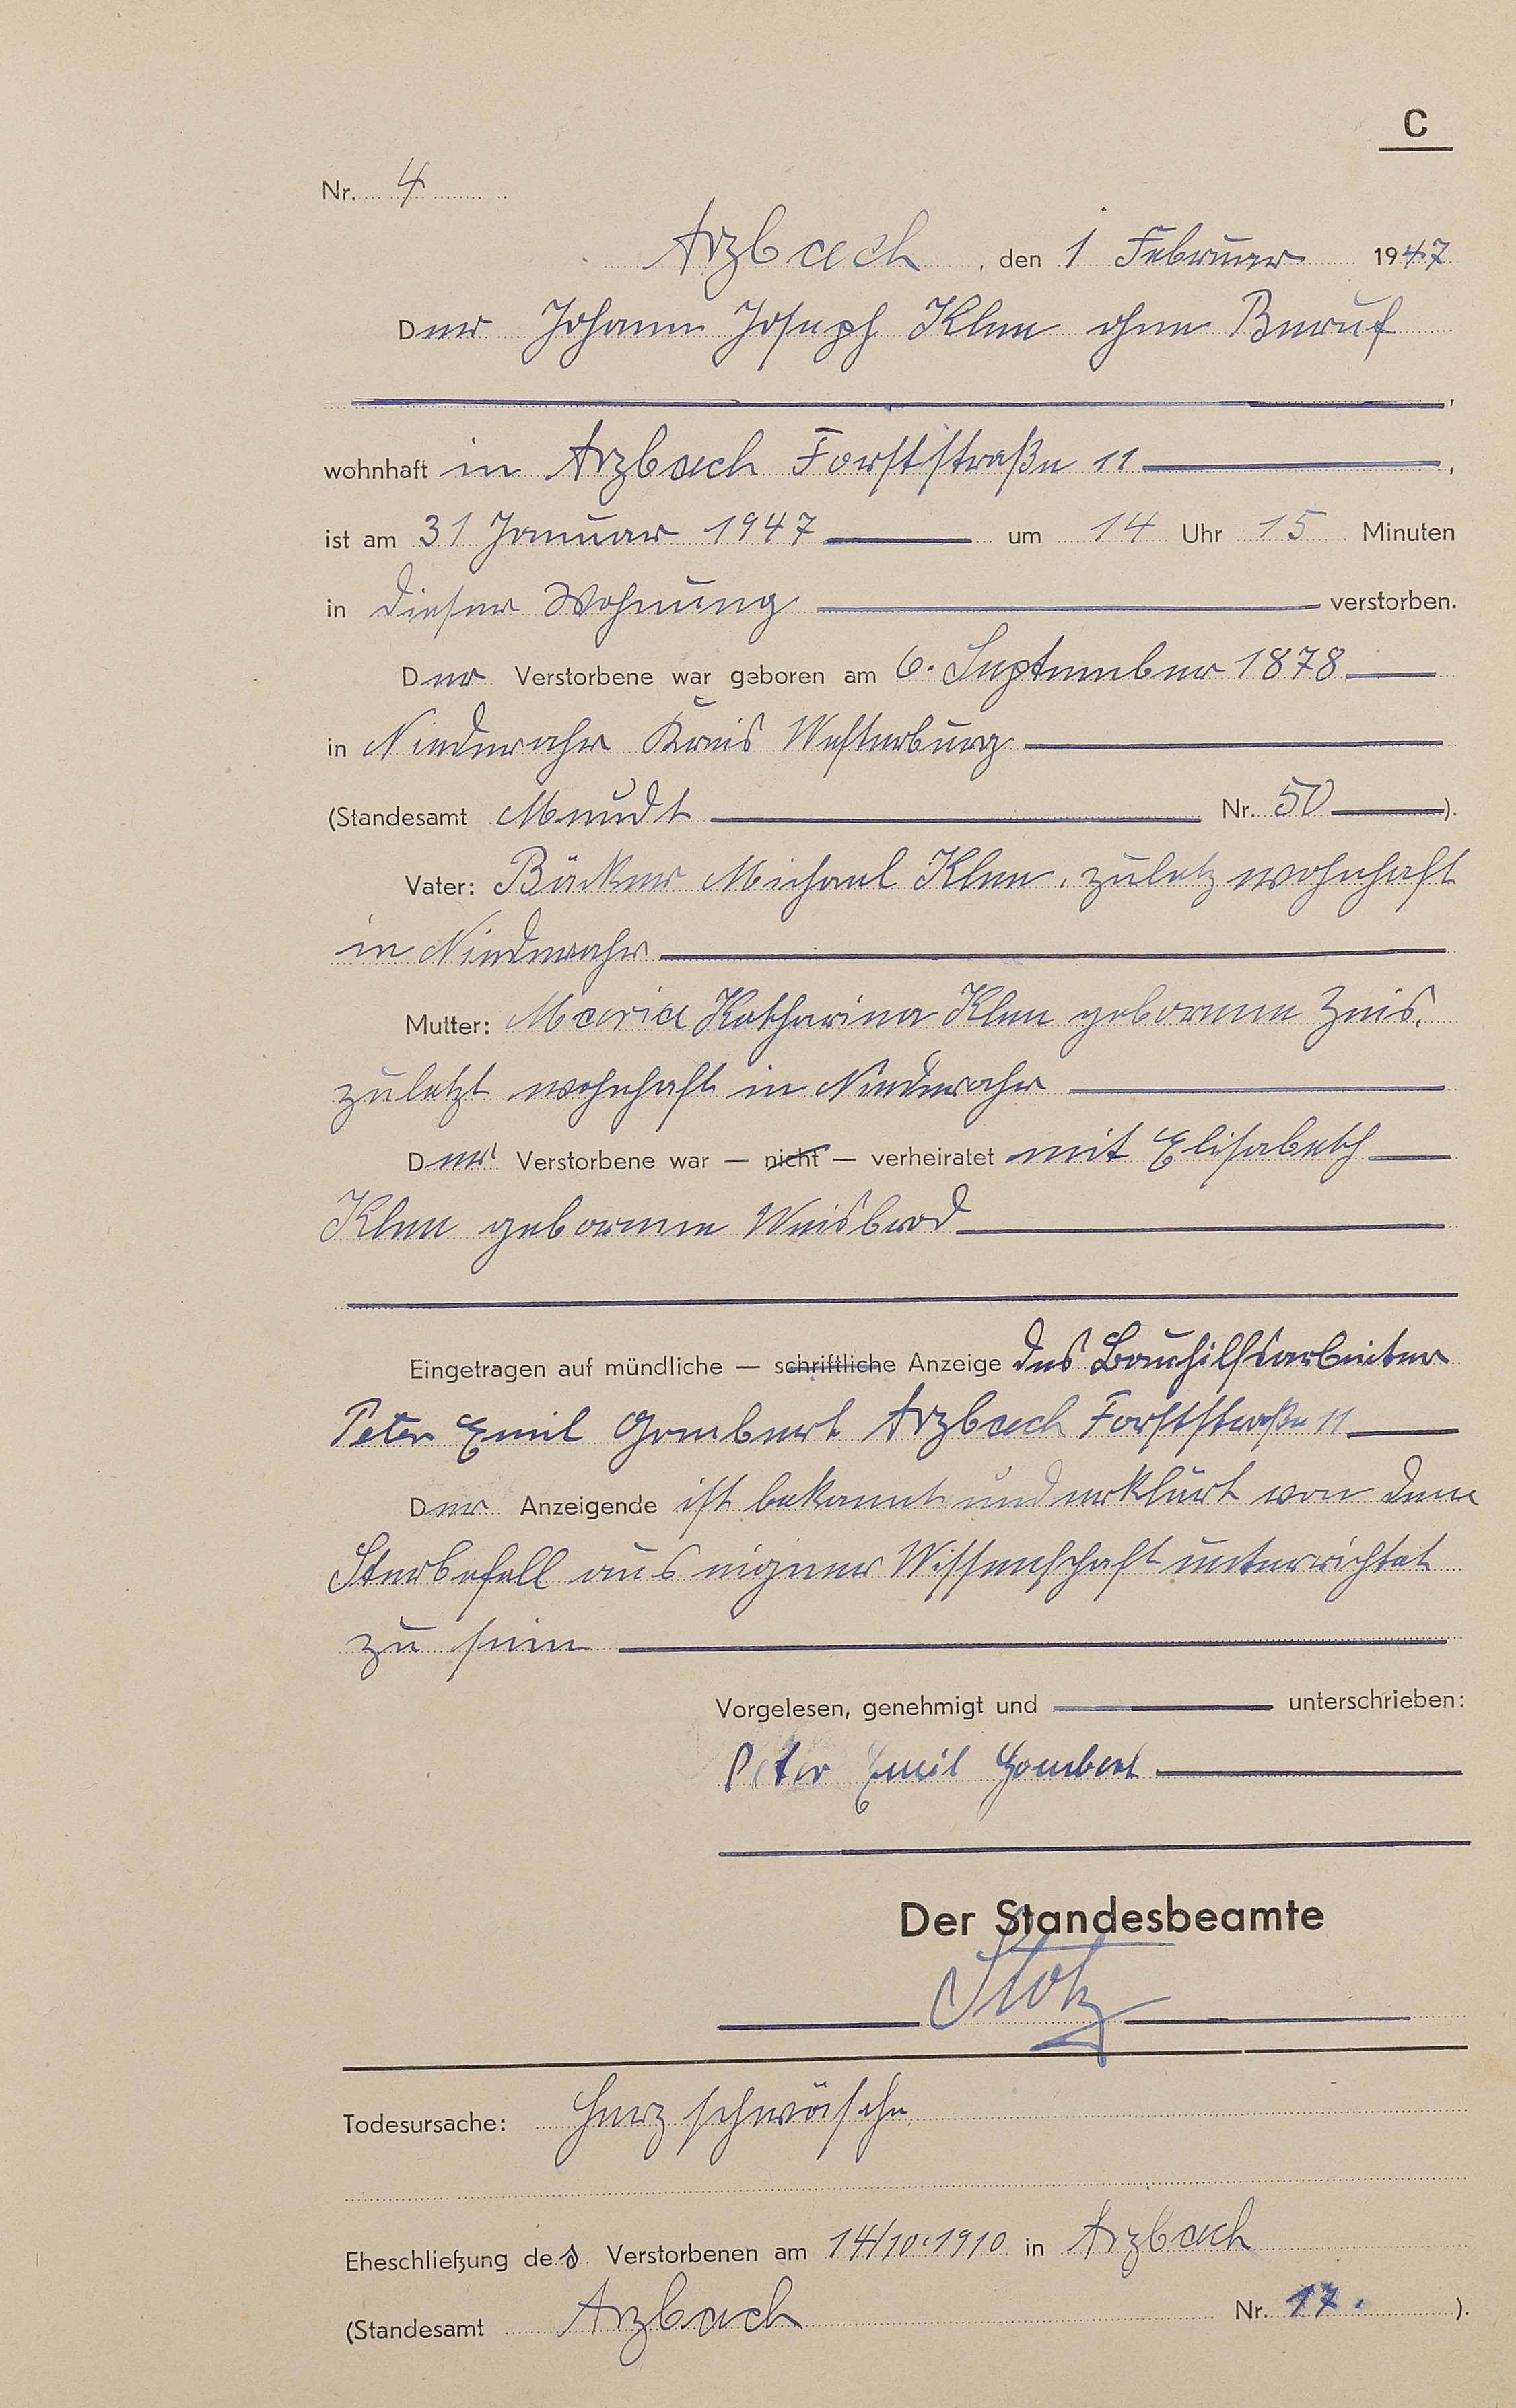 C
Nr. 4
Arzbach, den 1 Februar 1947
Der Johann Joseph Klee ohne Beruf
wohnhaft in Arzbach Forststraße 11,
ist am 31 Januar 1947 um 14 Uhr 15 Minuten
in dieser Wohnung verstorben.
Der Verstorbene war geboren am 6. September 1878
in Niederahr Kreis Westerburg
(Standesamt Meudt Nr. 50).
Vater: Bäcker Michael Klee, zuletz wohnhaft
in Niederahr
Mutter: Maria Katharina Klee geborene Zeis,
zuletzt wohnhaft in Niederahr
Der Verstorbene war — nicht — verheiratet mit Elisabeth
Klee geborene Weisbrod
Eingetragen auf mündliche — schriftliche Anzeige des Bauhilfsarbeiter
Peter Emil Gombert Arzbach Forststraße 11
Der Anzeigende ist bekannt und erklärt von dem
Sterbefall aus eigener Wissenschaft unterrichtet
zu sein
Vorgelesen, genehmigt und unterschrieben:
Peter Emil Gombert
Der Standesbeamte
Stotz
Todesursache: Herzschwäche
Eheschließung des Verstorbenen am 14/10.1910 in Arzbach
(Standesamt Arzbach Nr. 17.).